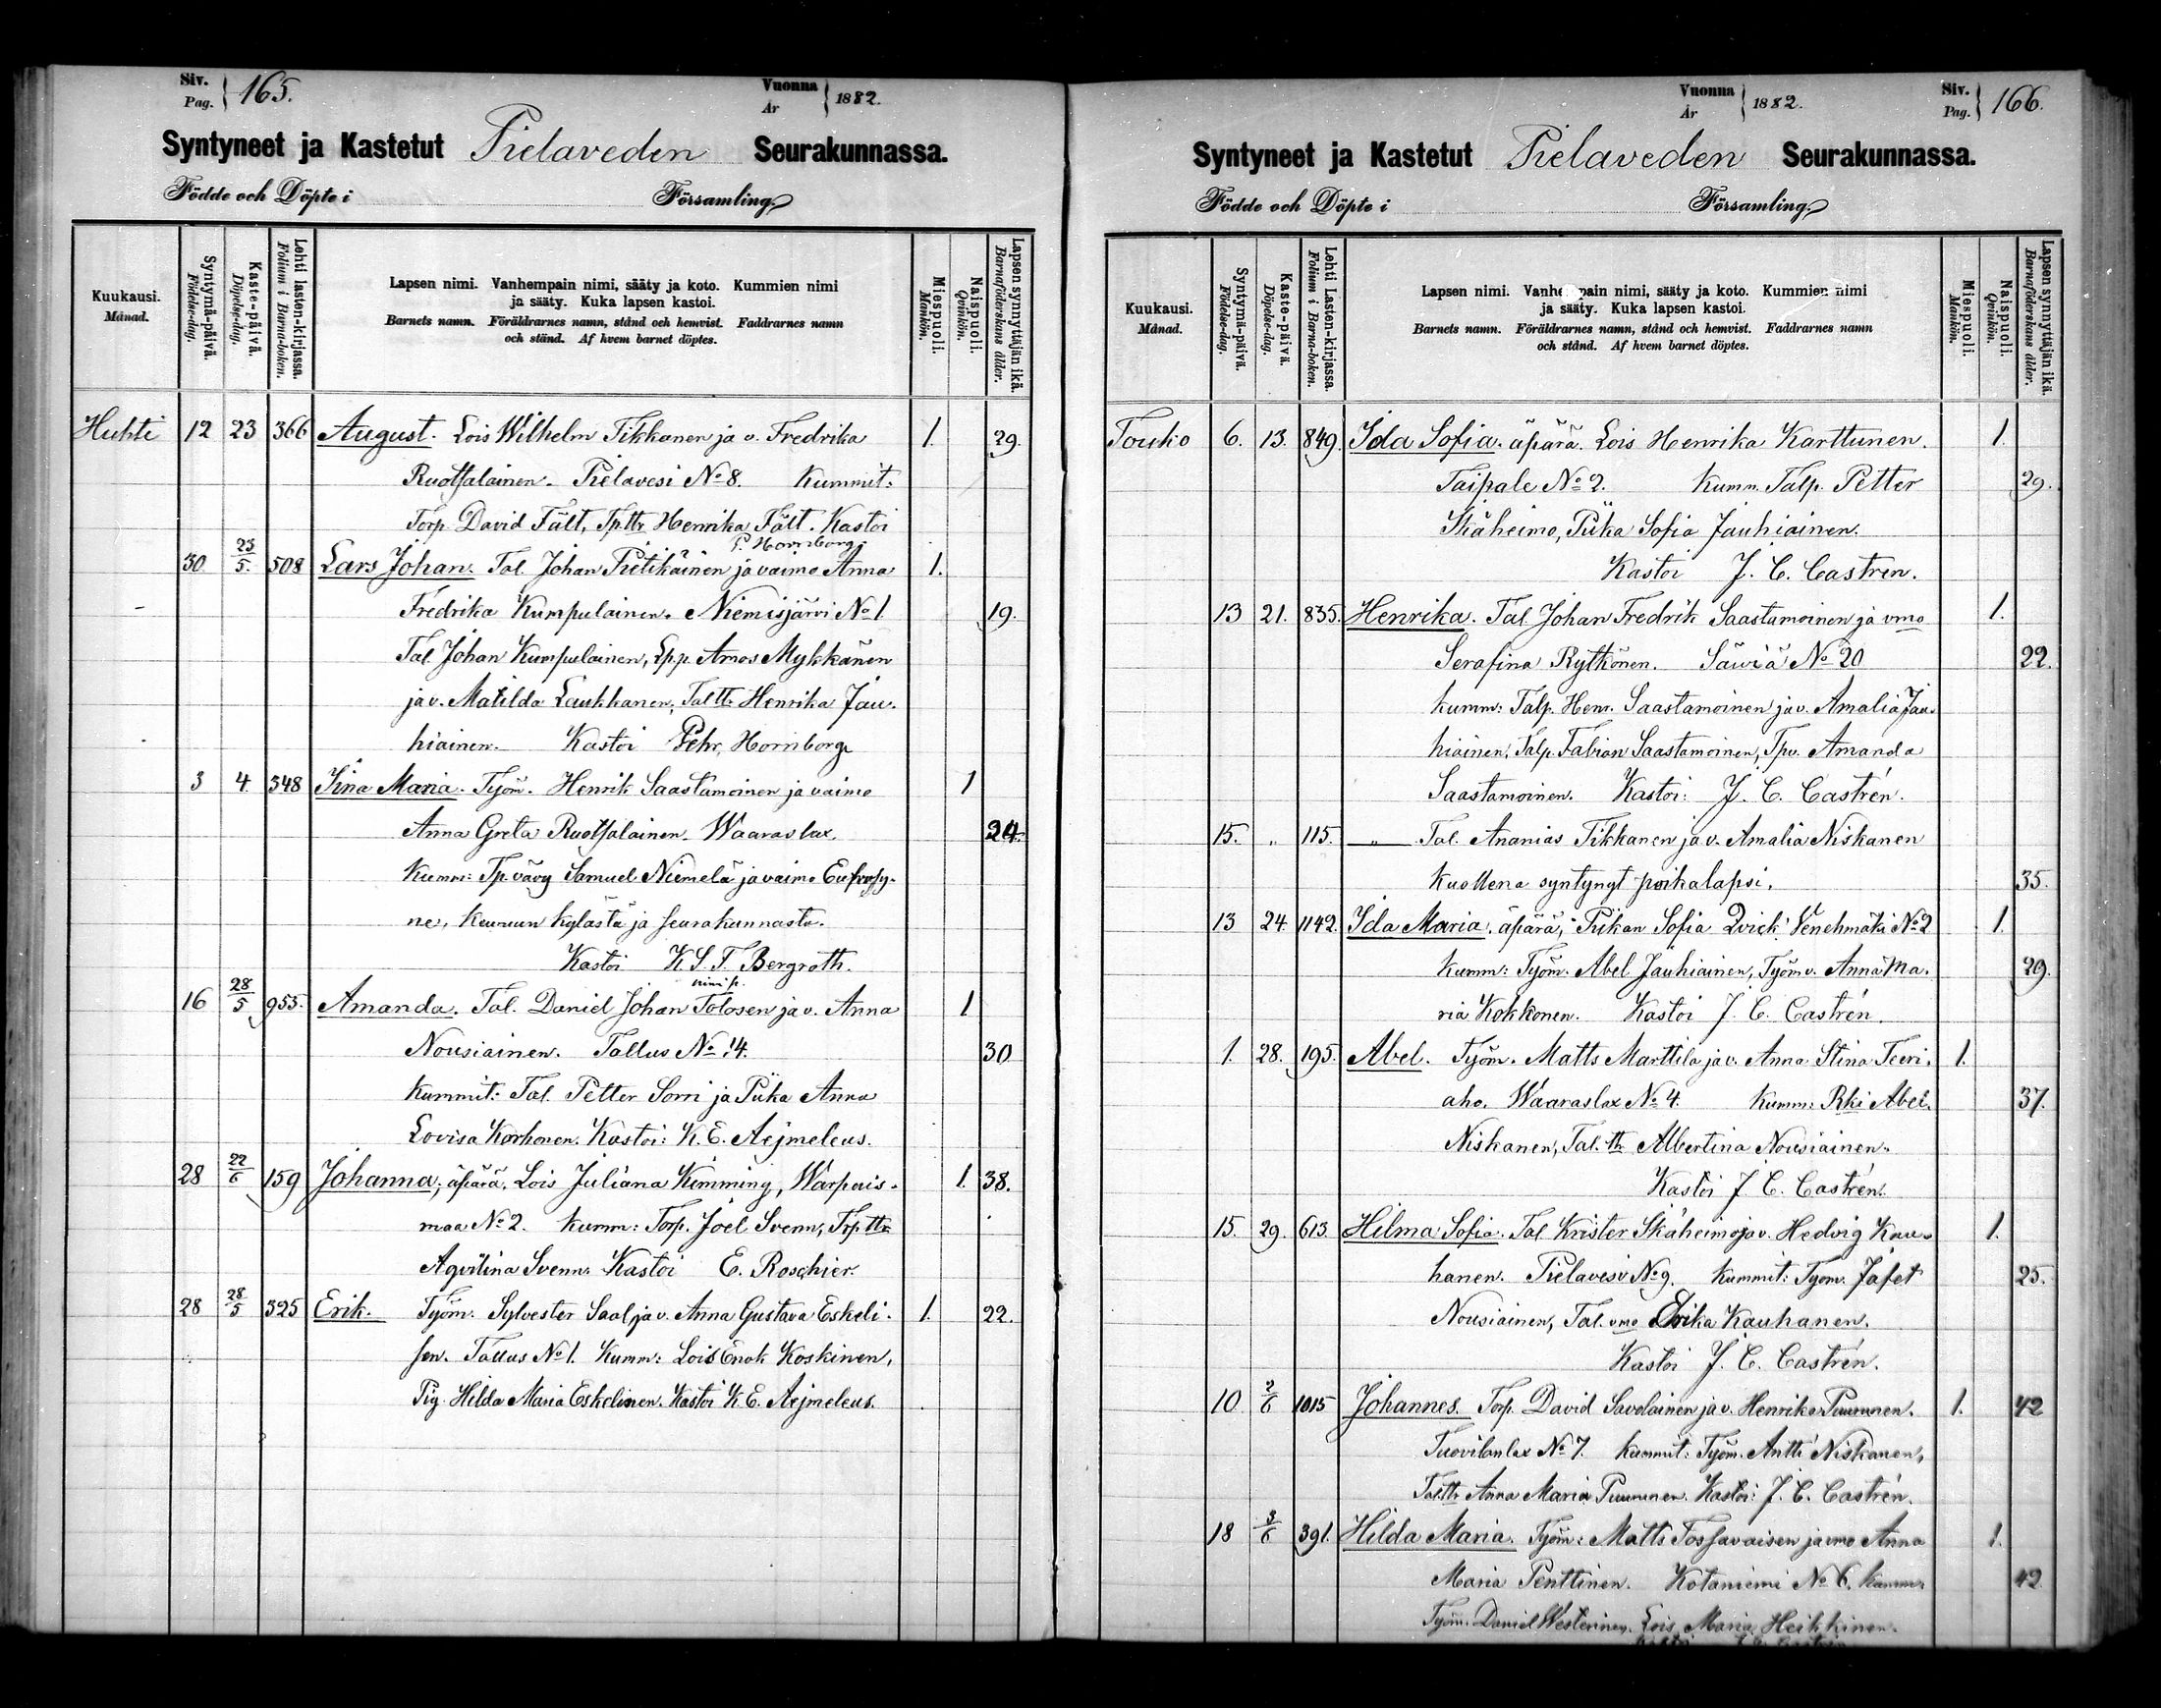 Siv. Pag. 165. Vuonna År 1882.
Syntyneet ja Kastetut Pielaveden Seurakunnassa.
Födde och Döpte i Församling.
Kuukausi. Månad.
Syntymä-päivä. Födelse-dag.
Kaste-päivä. Döpelse-dag.
Lehti lasten-kirjassa. Folium i Barna-boken.
Lapsen nimi. Vanhempain nimi, sääty ja koto. Kummien nimi
ja sääty. Kuka lapsen kastoi.
Barnets namn. Föräldrarnes namn, stånd och hemvist. Faddrarnes namn
och stånd. Af hvem barnet döptes.
Miespuoli. Mankön.
Naispuoli. Qvinkön.
Lapsen synnyttäjän ikä. Barnaföderskans ålder.
Huhti 12 23 366 August. Lois Wilhelm Tikkanen ja v. Fredrika 1. 29.
Ruotsalainen. Pielavesi No 8. Kummit:
Torp. David Fält, Tp.ttr Henrika Fält. Kastoi
P. Hornborg.
30 23/5. 508 Lars Johan. Tal. Johan Pietikäinen ja vaimo Anna 1.
Fredrika Kumpulainen. Niemisjärvi No 1. 19.
Tal. Johan Kumpulainen, Lp.p. Amos Mykkänen
ja v. Matilda Laukkanen, Tal ttr Henrika Jau-
hiainen. Kastoi Pehr Hornborg
3 4 348 Iina Maria. Työm. Henrik Saastamoinen ja vaimo 1
Anna Greta Ruotsalainen. Waaraslax 24.
Kumm: Tp. vävy Samuel Niemelä ja vaimo Eufrosy-
ne, Keuruun kylästä ja seurakunnasta.
Kastoi K. S. F. Bergroth.
nimi p.
16 28/5 955. Amanda. Tal. Daniel Johan Tolosen ja v. Anna 1
Nousiainen. Tallus No 14. 30
Kummit: Tal. Petter Sorri ja Piika Anna
Lovisa Korhonen. Kastoi: K. E. Aejmeleus.
28 22/6 159 Johanna; äpärä. Lois Juliana Kimming, Warpais- 1. 38.
maa No 2. Kumm: Torp. Joel Svenn, Trp.ttr
Aqvilina Svenn. Kastoi E. Roschier.
28 28/5 325 Erik. Työm. Sylvester Saal ja v. Anna Gustava Eskeli- 1. 22.
sen. Tallus No 1. Kumm: Lois Enok Koskinen,
Pig. Hilda Maria Eskelinen. Kastoi K. E. Aejmeleus.
Vuonna År 1882. Siv. Pag. 166.
Syntyneet ja Kastetut Pielaveden Seurakunnassa.
Födde och Döpte i Församling.
Kuukausi. Månad.
Syntymä-päivä. Födelse-dag.
Kaste-päivä. Döpelse-dag.
Lehti Lasten-kirjassa. Folium i Barna-boken.
Lapsen nimi. Vanhempain nimi, sääty ja koto. Kummien nimi
ja sääty. Kuka lapsen kastoi.
Barnets namn. Föräldrarnes namn, stånd och hemvist. Faddrarnes namn
och stånd. Af hvem barnet döptes.
Miespuoli. Mankön.
Naispuoli. Qvinkön.
Lapsen synnyttäjän ikä. Barnaföderskans ålder.
Touko 6. 13. 849. Ida Sofia. äpärä. Lois Henrika Karttunen. 1.
Taipale No 2. Kumm. Talp. Petter 29.
Skäheimo, Piika Sofia Jauhiainen.
Kastoi J. C. Castrén.
13 21. 835. Henrika. Tal Johan Fredrik Saastamoinen ja vmo 1.
Serafina Rytkönen. Säviä No 20 22.
kumm: Talp. Henr. Saastamoinen ja v. Amalia Jau-
hiainen, Talp. Fabian Saastamoinen, Tpv. Amanda
Saastamoinen. Kastoi: J. C. Castrén.
15. „ 115. „ Tal. Ananias Tikkanen ja v. Amalia Niskanen
kuollena syntynyt poikalapsi. 35.
13 24. 1142. Ida Maria. äpärä, Piikan Sofia Qvick. Venehmäki No 2 1.
kumm: Työm. Abel Jauhiainen, Työm v. Anna Ma- 29.
ria Kokkonen. Kastoi J. C. Castrén.
1. 28. 195. Abel. Työm. Matts Marttila ja v. Anna Stina Teeri- 1.
aho. Waaraslax No 4. Kumm: Rki Abel 37.
Niskanen, Tal. ttr Albertina Nousiainen.
Kastoi J. C. Castrén.
15. 29. 613. Hilma Sofia. Tal Krister Skäheimo ja v. Hedvig Kau- 1.
hanen. Pielavesi No 9. Kummit: Tyom. Jafet 25.
Nousiainen, Tal. vmo Erika Kauhanen.
Kastoi J. C. Castrén.
10 2/6 1015 Johannes. Torp. David Savolainen ja v. Henrika Puumnen. 1. 42
Tuovilanlax No 7. Kummit: Työm. Antti Niskanen,
Tal.ttr Anna Maria Puumnen. Kastoi: J. C. Castrén.
18 3/6 391. Hilda Maria. Työm: Matts Tossavaisen ja vmo Anna 1.
Maria Penttinen. Kotaniemi No 6. Kumm: 42
Työm. Daniel Westerinen, Lois Maria Heikkinen.